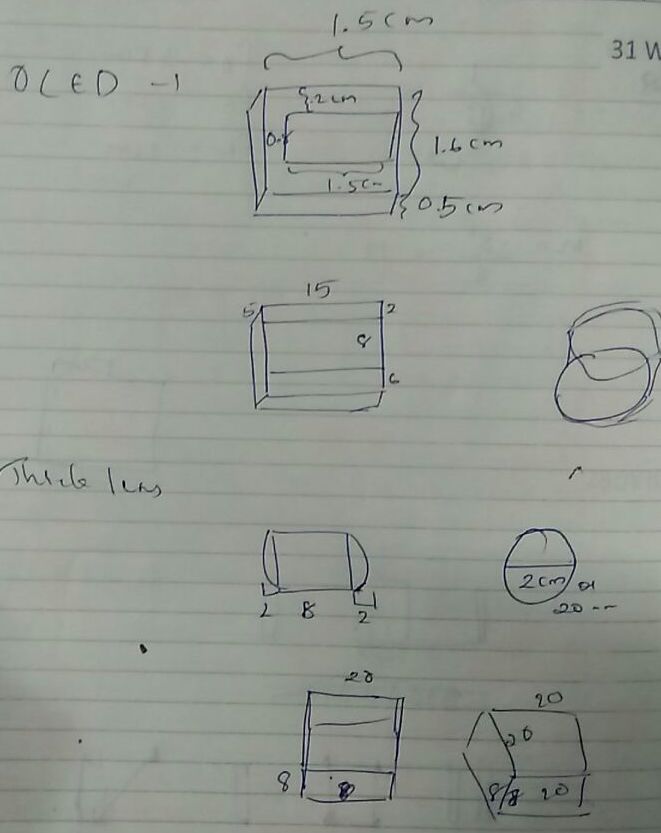 1.5cm
31 W
OLED -1
.2cm
1.6cm
1.5cm
0.5cm
15
5 2
8
6
Thick lens
2 8 2
2cm or
20
20
8
20
20
8/8 20